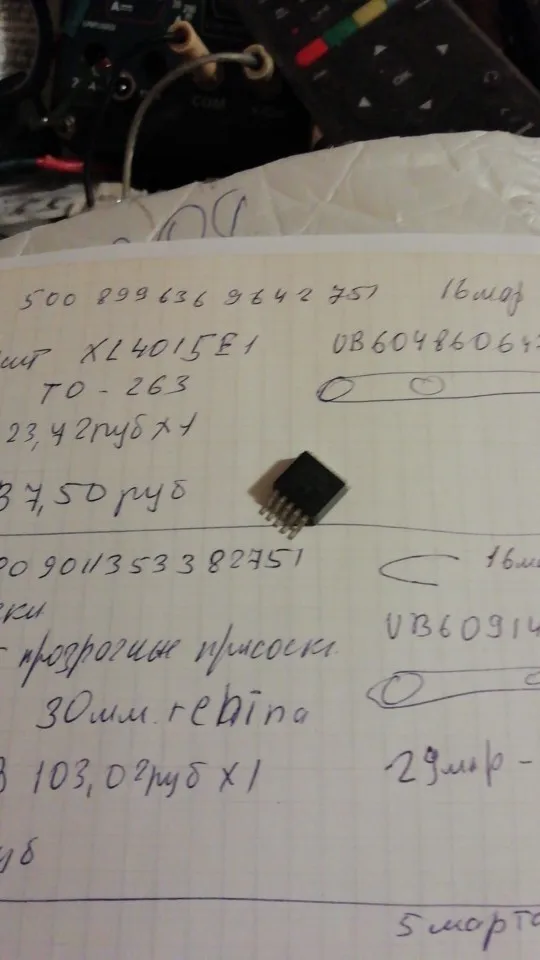 COM
OK
500 899636 9642 751 16 мар
шт XL4015E1 UB60486064
TO - 263
23,42руб x1
37,50 руб
090113533 82751 16м
прозрачные присоски
UB60914
30мм. rebina
103,02руб x1 29мар -
уб
5 марта